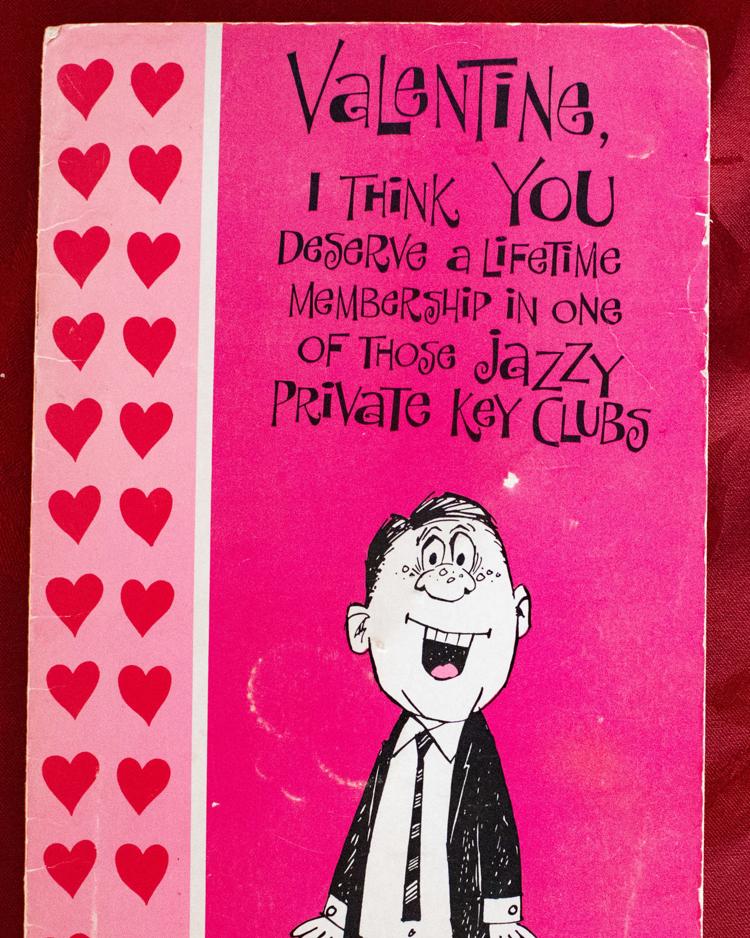 VaLeNTiNe,
I THiNK YOU
DeSeRVe a LiFeTiMe
MeMBeRSHiP iN ONe
OF THOSe jaZZY
PRiVaTe KeY CLUBS